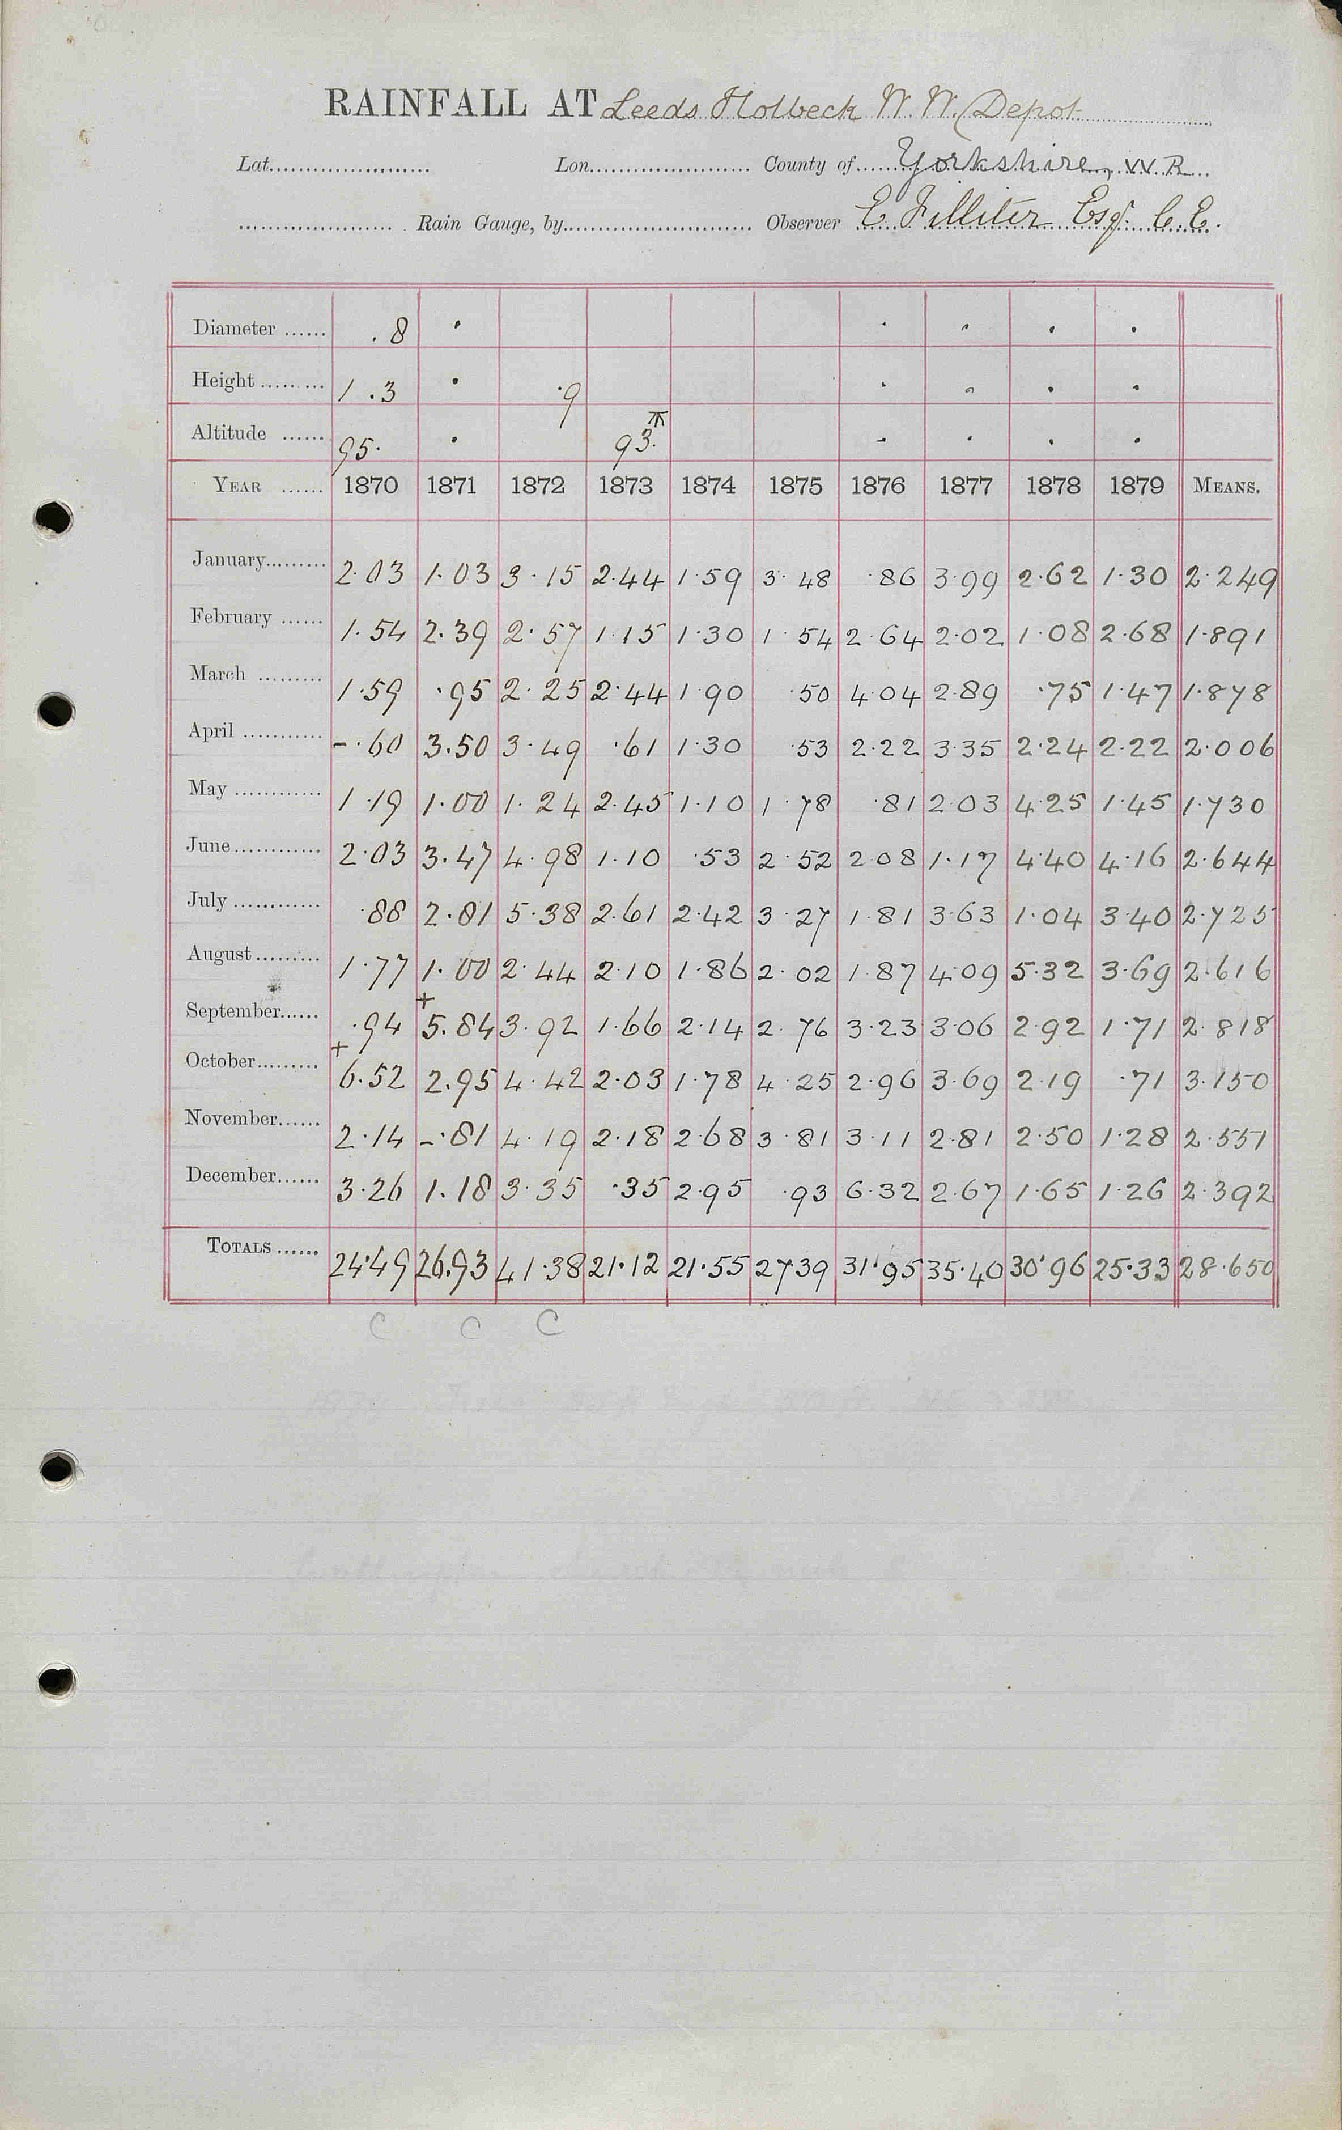 RAINFALL AT Leeds Holbeck W. W. Depot
Lat. Lon. County of Yorkshire, W R.
Rain Gauge, by Observer E Filliter Esq. C. E.
Diameter .8 · · · · ·
Height 1 .3 · ·9 · · · ·
Altitude 95· · 93· · · · ·
YEAR 1870 1871 1872 1873 1874 1875 1876 1877 1878 1879 MEANS.
January 2·03 1·03 3·15 2·44 1·59 3·48 ·86 3·99 2·62 1·30 2·249
February 1·54 2·39 2·57 1·15 1·30 1·54 2·64 2·02 1·08 2·68 1·891
March 1·59 ·95 2·25 2·44 1·90 ·50 4·04 2·89 ·75 1·47 1·878
April -·60 3.50 3·49 ·61 1·30 ·53 2·22 3·35 2·24 2·22 2·006
May 1·19 1·00 1·24 2·45 1·10 1·78 ·81 2·03 4·25 1·45 1·730
June 2·03 3·47 4·98 1·10 ·53 2·52 2·08 1·17 4·40 4·16 2·644
July ·88 2·81 5·38 2·61 2·42 3·27 1·81 3·63 1·04 3·40 2·725
August 1·77 1·00 2·44 2·10 1·86 2·02 1·87 4·09 5·32 3·69 2·616
September ·94 + 5.84 3·92 1·66 2·14 2·76 3·23 3·06 2·92 1·71 2·818
October + 6.52 2.95 4·42 2·03 1·78 4·25 2·96 3·69 2·19 ·71 3·150
November 2·14 -·81 4·19 2·18 2·68 3·81 3·11 2·81 2·50 1·28 2·551
December 3·26 1·18 3·35 ·35 2·95 ·93 6·32 2·67 1·65 1·26 2·392
TOTALS 24·49 26.93 41·38 21·12 21·55 27 39 31·95 35·40 30·96 25·33 28·650
C C C